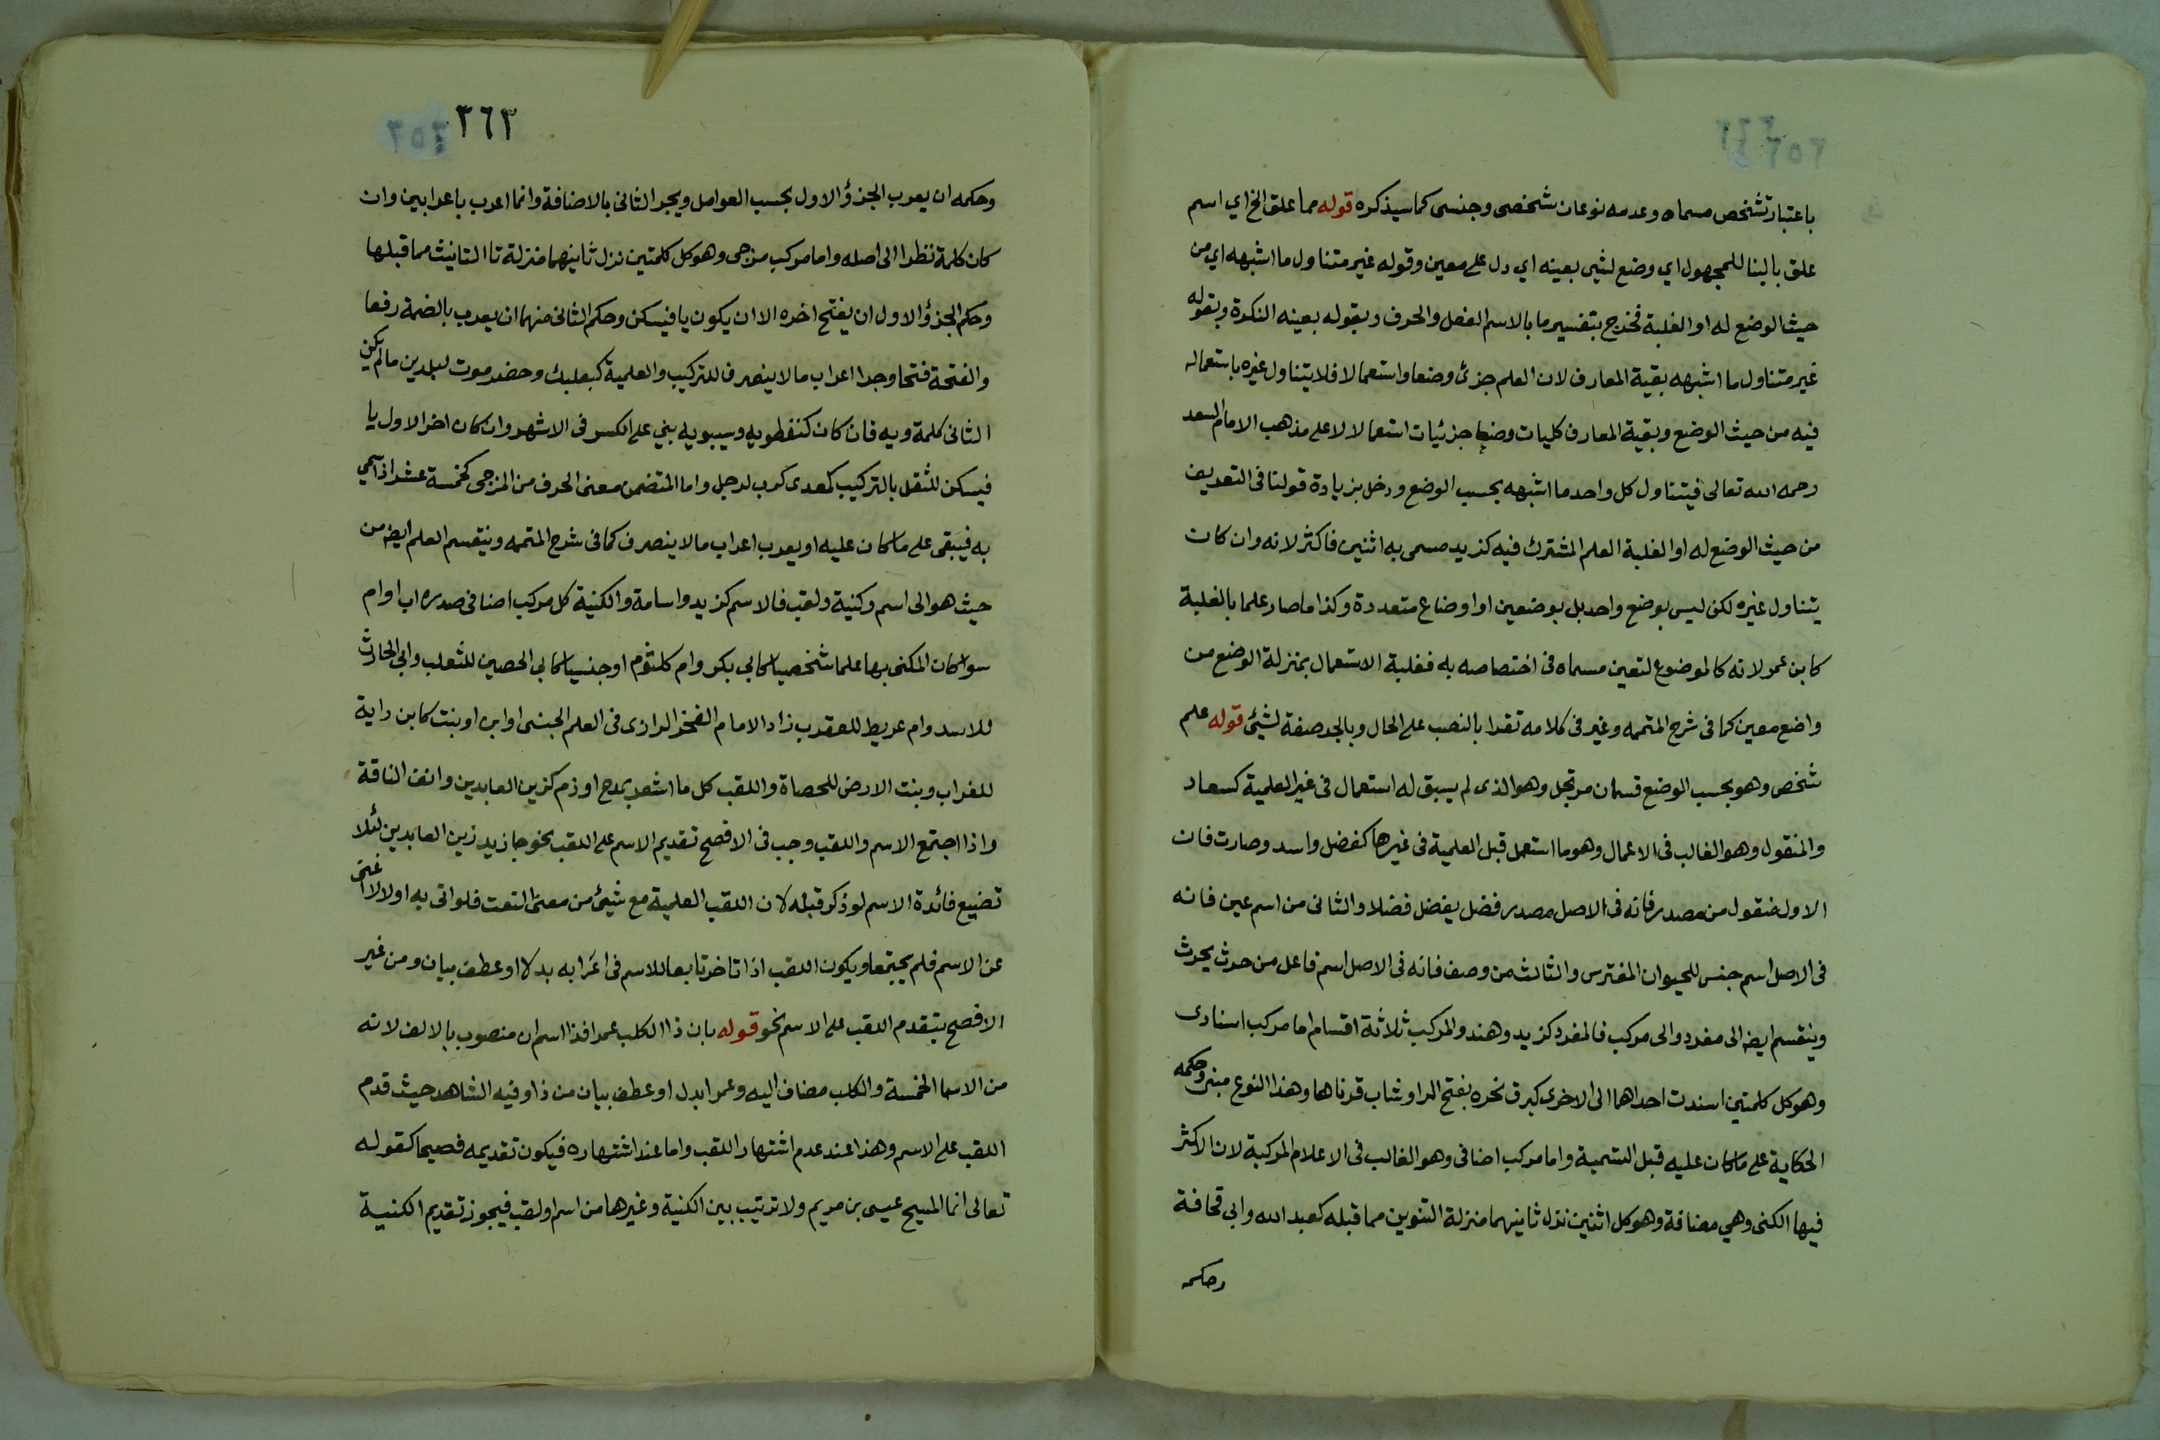 باعتبار تشخص مسماه وعدمه نوعان شخصى وجنسى كما سيذكره قوله مما علق الخ اي اسم
علق بالبنا للمجهول اي وضع لشى بعينه اي دل على معين وقوله غير متناول ما اشبهه اي من
حيث الوضع له او الغلبة فخرج بتفسير ما بالاسم الفعل والحرف وبقوله بعينه النكرة وبقوله
غير متناول ما اشبهه بقية المعارف لان العلم جزئ وضعا واستعمالا فلا يتناول غيره باستعماله
فيه من حيث الوضع وبقية المعارف كليات وضعا جزئيات استعمالا لا على مذهب الامام السعد
رحمه الله تعالى فيتناول كل واحد ما اشبهه بحسب الوضع ودخل بزيادة قولنا فى التعريف
من حيث الوضع له او الغلبة العلم المشترك فيه كزيد مسمى به اثنين فاكثر لانه وان كان
يتناول غيره لكن ليس بوضع واحد بل بوضعين او اوضاع متعددة وكذا ما صار علما بالغلبة
كابن عمر لانه كالموضوع لتعين مسماه فى اختصاصه به فغلبة الاستعمال بمنزلة الوضع من
واضع معين كما فى شرح المتممه وغير فى كلامه تقرا بالنصب على الحال وبالجر صفة لشئ قوله علم
شخص وهو بحسب الوضع قسمان مرتجل وهو الذى لم يسبق له استعمال فى غير العلمية كسعاد
والمنقول وهو الغالب فى الاعمال وهو ما استعمل قبل العلمية فى غيرها كفضل واسد وصارت فان
الاول منقول من مصدر فانه فى الاصل مصدر فضل يفضل فضلا والثانى من اسم عين فانه
فى الاصل اسم جنس للحيوان المفترس والثالث من وصف فانه فى الاصل اسم فاعل من حرث يحرث
وينقسم ايضا الى مفرد والى مركب فالمفرد كزيد وهند والمركب ثلاثة اقسام اما مركب اسنادى
وهو كل كلمتين اسندت احداهما الى الاخرى كبرق نحره بفتح الرا وشاب قرناها وهذا النوع مبنى وحكمه
الحكاية على ما كان عليه قبل التسمية واما مركب اضافى وهو الغالب فى الاعلام المركبة لان الاكثر
فيها الكنى وهي مضافة وهو كل اثنين نزل ثانيهما منزلة التنوين مما قبله كعبد الله وابى قحافة
وحكمه
٣٦٣
وحكمه ان يعرب الجزؤ الاول بحسب العوامل ويجر الثانى بالاضافة وانما اعرب باعرابين وان
كان كلمة نظرا الى اصله واما مركب مزجى وهو كل كلمتين نزل ثانيهما منزلة تا التانيث مما قبلها
وحكم الجزؤ الاول ان يفتح اخره الا ان يكون يا فيسكن وحكم الثانى منهما ان يعرب بالضمة رفعا
والفتحة فتحا وجرا اعراب ما لا ينصرف للتركيب والعلمية كبعلبك وحضرموت لبلدين ما لم يكن
الثانى كلمة ويه فان كان كنفطويه وسيبويه بني على الكسر فى الاشهر وان كان اخر الاول يا
فيسكن للثقل بالتركيب كمعدى كرب لرجل واما المتضمن معنى الحرف من المزجى كخمسة عشر اذا سمي
به فيبقى على ما كان عليه او يعرب اعراب ما لا ينصرف كما فى شرح المتممه وينقسم العلم ايضا من
حيث هو الى اسم وكنية ولقب فالاسم كزيد واسامة والكنية كل مركب اضافى صدره اب او ام
سوا كان المكنى بها علما شخصيا كابي بكر وام كلثوم او جنسيا كابى الحصين للثعلب وابى الحارث
للاسد وام عريط للعقرب زاد الامام الفخر الرازى فى العلم الجنسى او ابن او بنت كابن داية
للغراب وبنت الارض للحصاة واللقب كل ما اشعر بمدح او ذم كزين العابدين وانف الناقة
واذا اجتمع الاسم واللقب وجب فى الافصح تقديم الاسم على اللقب نحو جا زيد زين العابدين لئلا
تضيع فائدة الاسم لو ذكر قبله لان اللقب العلمية مع شيئ من معنى النعت فلو اتى به اولا لاغنى
عن الاسم فلم يجتمعا ويكون اللقب اذا تاخر تابعا للاسم فى اعرابه بدلا او عطف بيان ومن غير
الافصح يتقدم اللقب على الاسم نحو قوله بان ذا الكلب عمرا فذا اسم ان منصوب بالالف لانه
من الاسما الخمسة والكلب مضاف اليه وعمرا بدل او عطف بيان من ذا وفيه الشاهد حيث قدم
اللقب على الاسم وهذا عند عدم اشتهار اللقب واما عند اشتهاره فيكون تقديمه فصيحا كقوله
تعالى انما المسيح عيسى بن مريم ولا ترتيب بين الكنية وغيرها من اسم او لقب فيجوز تقديم الكنية